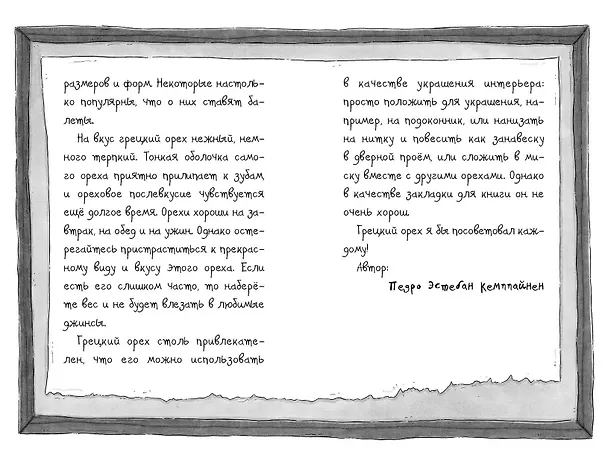 размеров и форм. Некоторые настоль-
ко популярны, что о них ставят ба-
леты.
На вкус грецкий орех нежный, нем-
ного терпкий. Тонкая оболочка само-
го ореха приятно прилипает к зубам
и ореховое послевкусие чувствуется
ещё долгое время. Орехи хороши на за-
втрак, на обед и на ужин. Однако осте-
регайтесь пристраститься к прекрас-
ному виду и вкусу этого ореха. Если
есть его слишком часто, то наберё-
те вес и не будет влезать в любимые
джинсы.
Грецкий орех столь привлекате-
лен, что его можно использовать
в качестве украшения интерьера:
просто положить для украшения, на-
пример, на подоконник, или нанизать
на нитку и повесить как занавеску
в дверной проём, или сложить в ми-
ску вместе с другими орехами. Однако
в качестве закладки для книги он не
очень хорош.
Грецкий орех я бы посоветовал каж-
дому!
Автор:
Педро Эстебан Кемппайнен